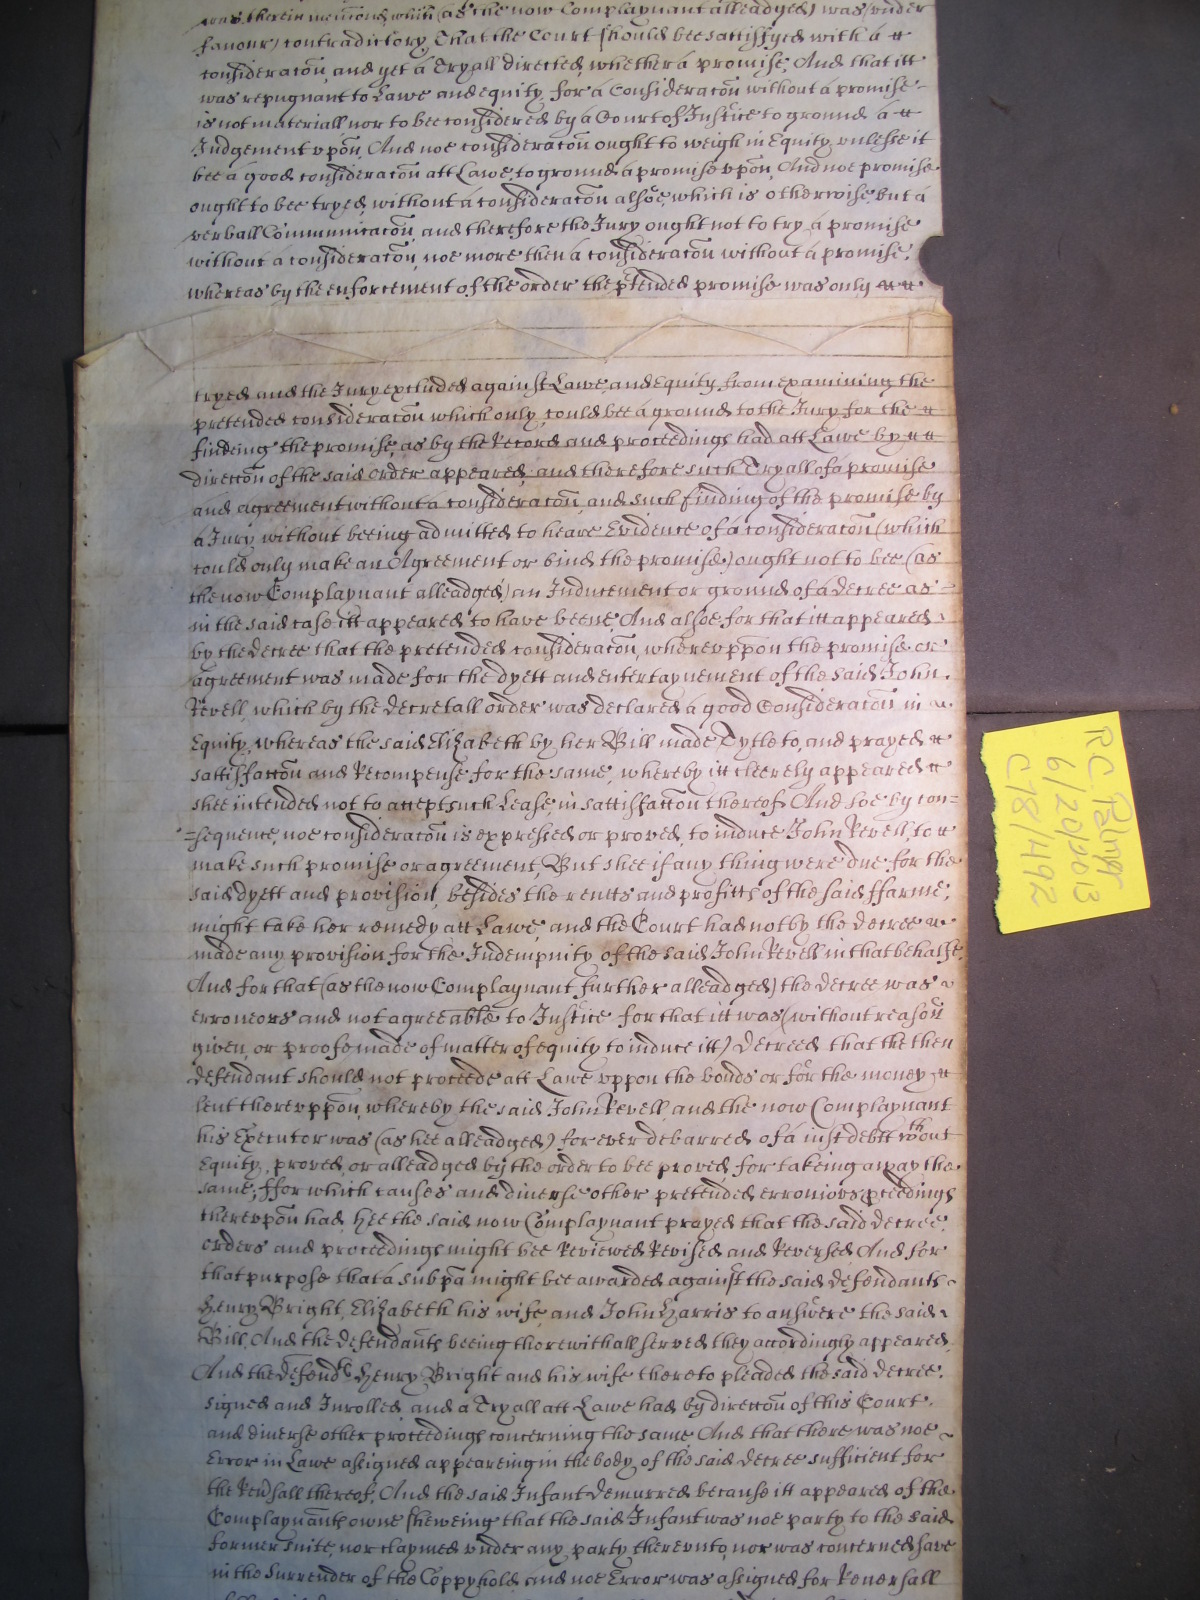 was therein menconed, which (as the now Complaynant alleadged) was (under
favour) contradictory, That the Court should bee sattisfyed with á
consideracõn, and yet á Tryall directed, whether á promise, And that itt
was repugnant to Lawe and equity, for á Consideracõn without á promise
is not materiall nor to bee considered by á Court of Justice to ground á
Judgement vpõn, And noe consideracõn ought to weigh in Equity, vnlesse it
bee á good consideracõn att Lawe, to ground á promise vpõn, And noe promise
ought to bee tryed, without á consideracõn alsoe, which is otherwise but á
verball Communicacõn, and therefore the Jury ought not to try á promise
without á consideracõn, noe more then á consideracõn without á promise,
whereas by the enforcement of the order the p̃tended promise was only
tryed and the Jury excluded against Lawe, and Equity from examining the
pretended consideracõn which only could bee á ground to the Jury for the
findeing the promise, as by the Record and proceedings had att Lawe by
direccõn of the said order appeared, and therefore such Tryall of á promise
and agreement without á consideracõn, and such finding of the promise by
á Jury, without beeing admitted to heare Evidence of á consideracõn (which
could only make an Agreement or bind the promise) ought not to bee (as
the now Complaynant alleadged) an Inducement or ground of á decree as =
in the said case itt appeared to have beene, And alsoe for that itt appeared
by the decree that the pretended consideracõn, wherevppõn the promise or
agreement was made for the dyett and entertaynement of the said John
Revell, which by the decretall order was declared á good Consideracõn in
Equity, whereas the said Elizabeth by her Bill made Tytle to, and prayed
sattisfaccõn and Recompense for the same, whereby itt cleerely appeared
shee intended not to accept such Lease, in sattisfaccõn thereof, And soe by con=
=sequence, noe consideracõn is expressed or proved, to induce John Revell, to
make such promise or agreement, But shee if any thing were due for the
said dyett and provision, besides the rentts and profitts of the said ffarme,
might take her remedy att Lawe, and the Court had not by the decree
made any provision for the Indempnity of the said John Revell in that behalfe,
And for that (as the now Complaynant further alleadged) the decree was
erroneors and not agreeable to Justice for that itt was (without reasõn
given, or proofe made of matter of equity to induce itt) Decreed that the then
defendant should not proceede att Lawe vppon the bonds or for the money
lent therevppõn, whereby the said John Revell and the now Complaynant
his Executor was (as hee alleadged) for ever debarred of á iust debtt wthout
Equity, proved, or alleadged by the order to bee proved for takeing away the
same, ffor which causes and diuerse other pretended erroniors p̱ceedings
therevpõn had, Hee the said now Complaynant prayed that the said decree,
orders and proceedings might bee Reviewed Revised and Reversed, And for
that purpose that á subpã might bee awarded against the said defendants
Henry Bright, Elizabeth his wife, and John Harris to answere the said
Bill, And the defendants beeing therewithall served they accordingly appeared,
And the defendts Henry Bright and his wife thereto pleaded the said decree,
signed and Inrolled, and a Tryall att Lawe had by direccõn of this Court,
and diuerse other proceedings concerning the same And that there was noe
Error in Lawe assigned appeareing in the body of the said decree sufficient for
the Rev̾sall thereof, And the said Infant demurred because itt appeared of the
Complaynants owne sheweing that the said Infant was noe party to the said
former suite, nor claymed vnder any party therevnto, nor was concerned save
in the Surrender of the Coppyhold, and noe Error was assigned for Reversall
R.C. Palmer
6/20/2013
C78/492